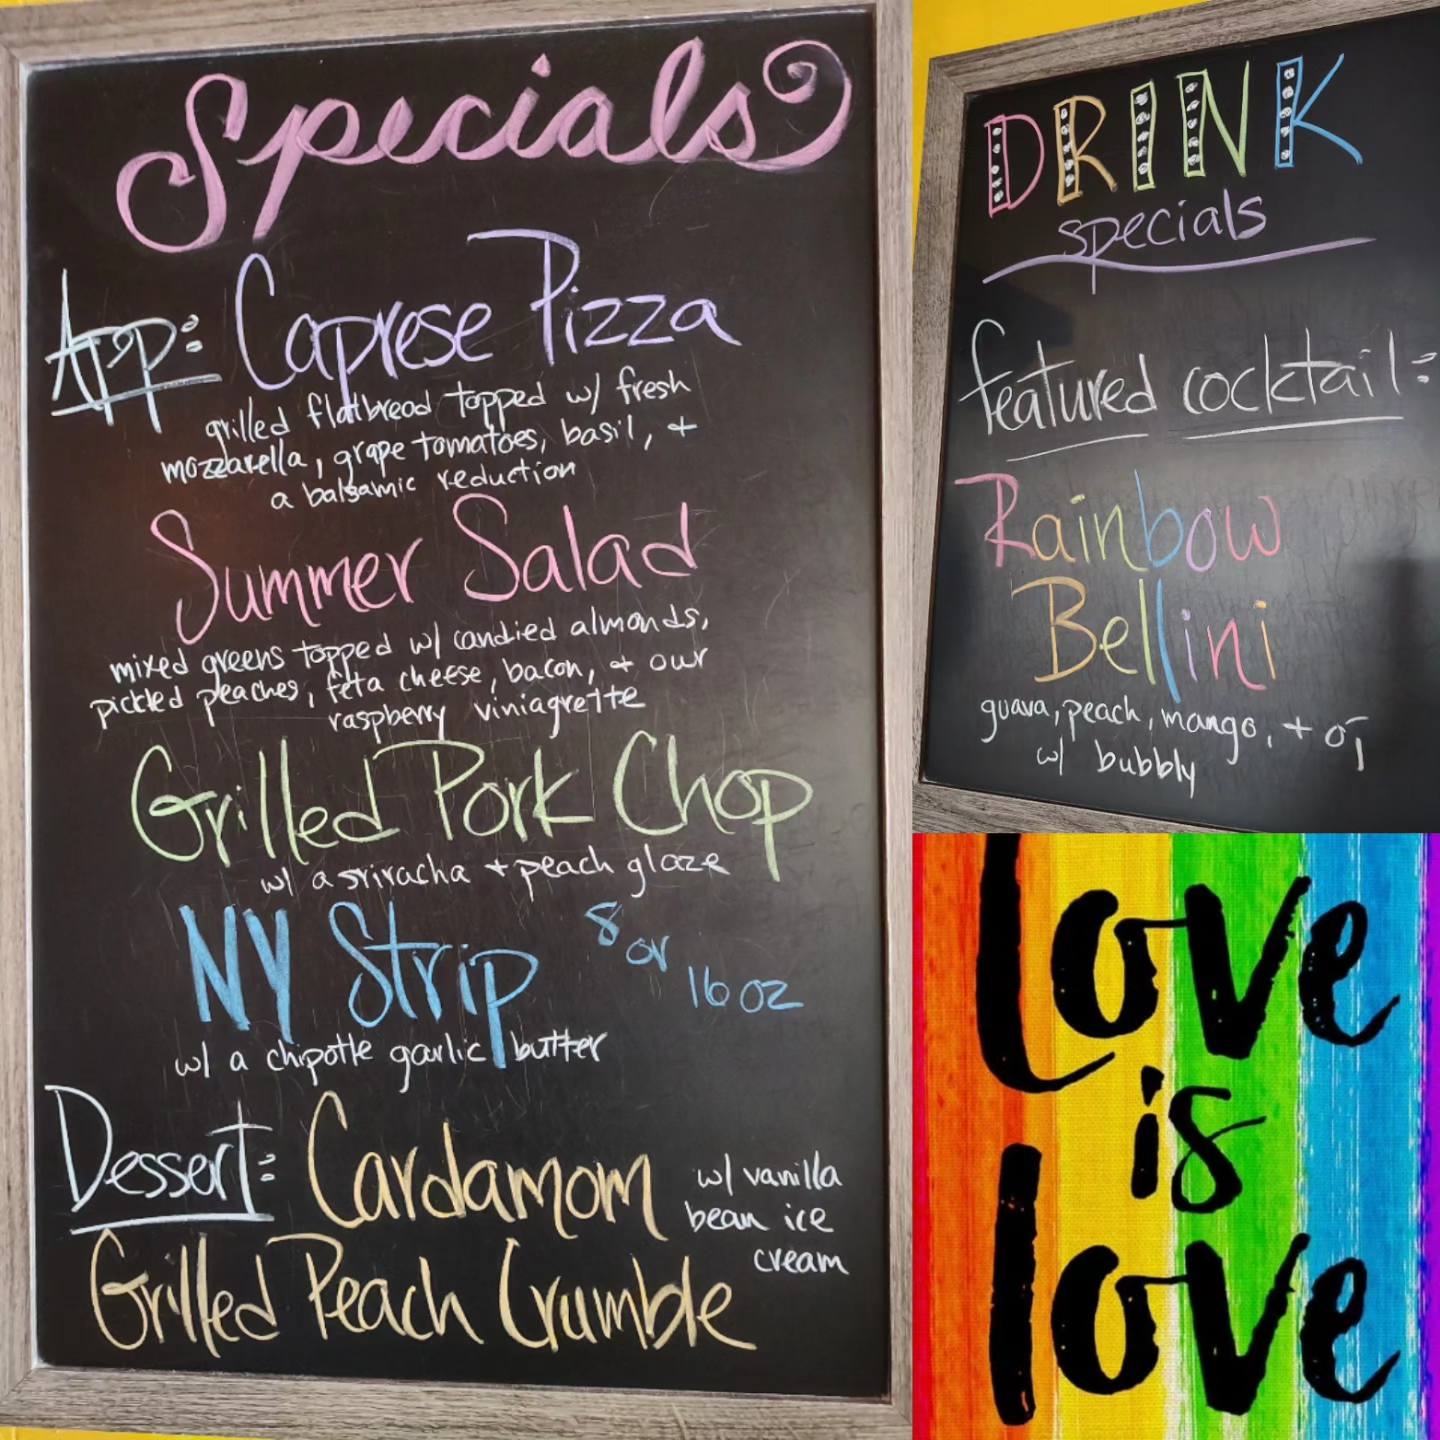 Specials
App: Caprese Pizza
grilled flatbread topped w/ fresh
mozzarella, grape tomatoes, basil, +
a balsamic reduction
Summer Salad
mixed greens topped w/ candied almonds,
pickled peaches, feta cheese, bacon, + our
raspberry viniagrette
Grilled Pork Chop
w/ a sriracha + peach glaze
NY Strip 8 or 16 oz
w/ a chipotle garlic butter
Dessert: Cardamom
Grilled Peach Crumble
w/ vanilla
bean ice
cream
DRINK
specials
featured cocktail:
Rainbow
Bellini
guava, peach, mango, + oj
w/ bubbly
Love
is
love